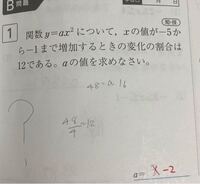 B 問題
月 日
知・技
1 関数y=ax²について，xの値が-5か
ら-1まで増加するときの変化の割合は
12である。aの値を求めなさい。
?
48=a 16
48/4=12
a= x-2